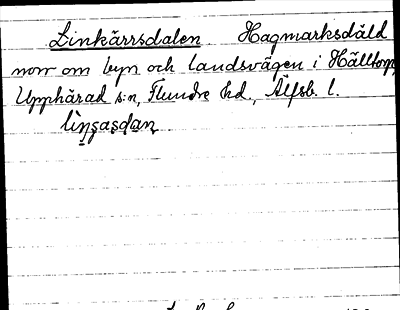 Linkärrsdalen Hagmarksdäld
norr om byn och landsvägen i Hälltorp,
Upphärad s:n, Flundre hd., Älfsb. l.
lìnsasdan